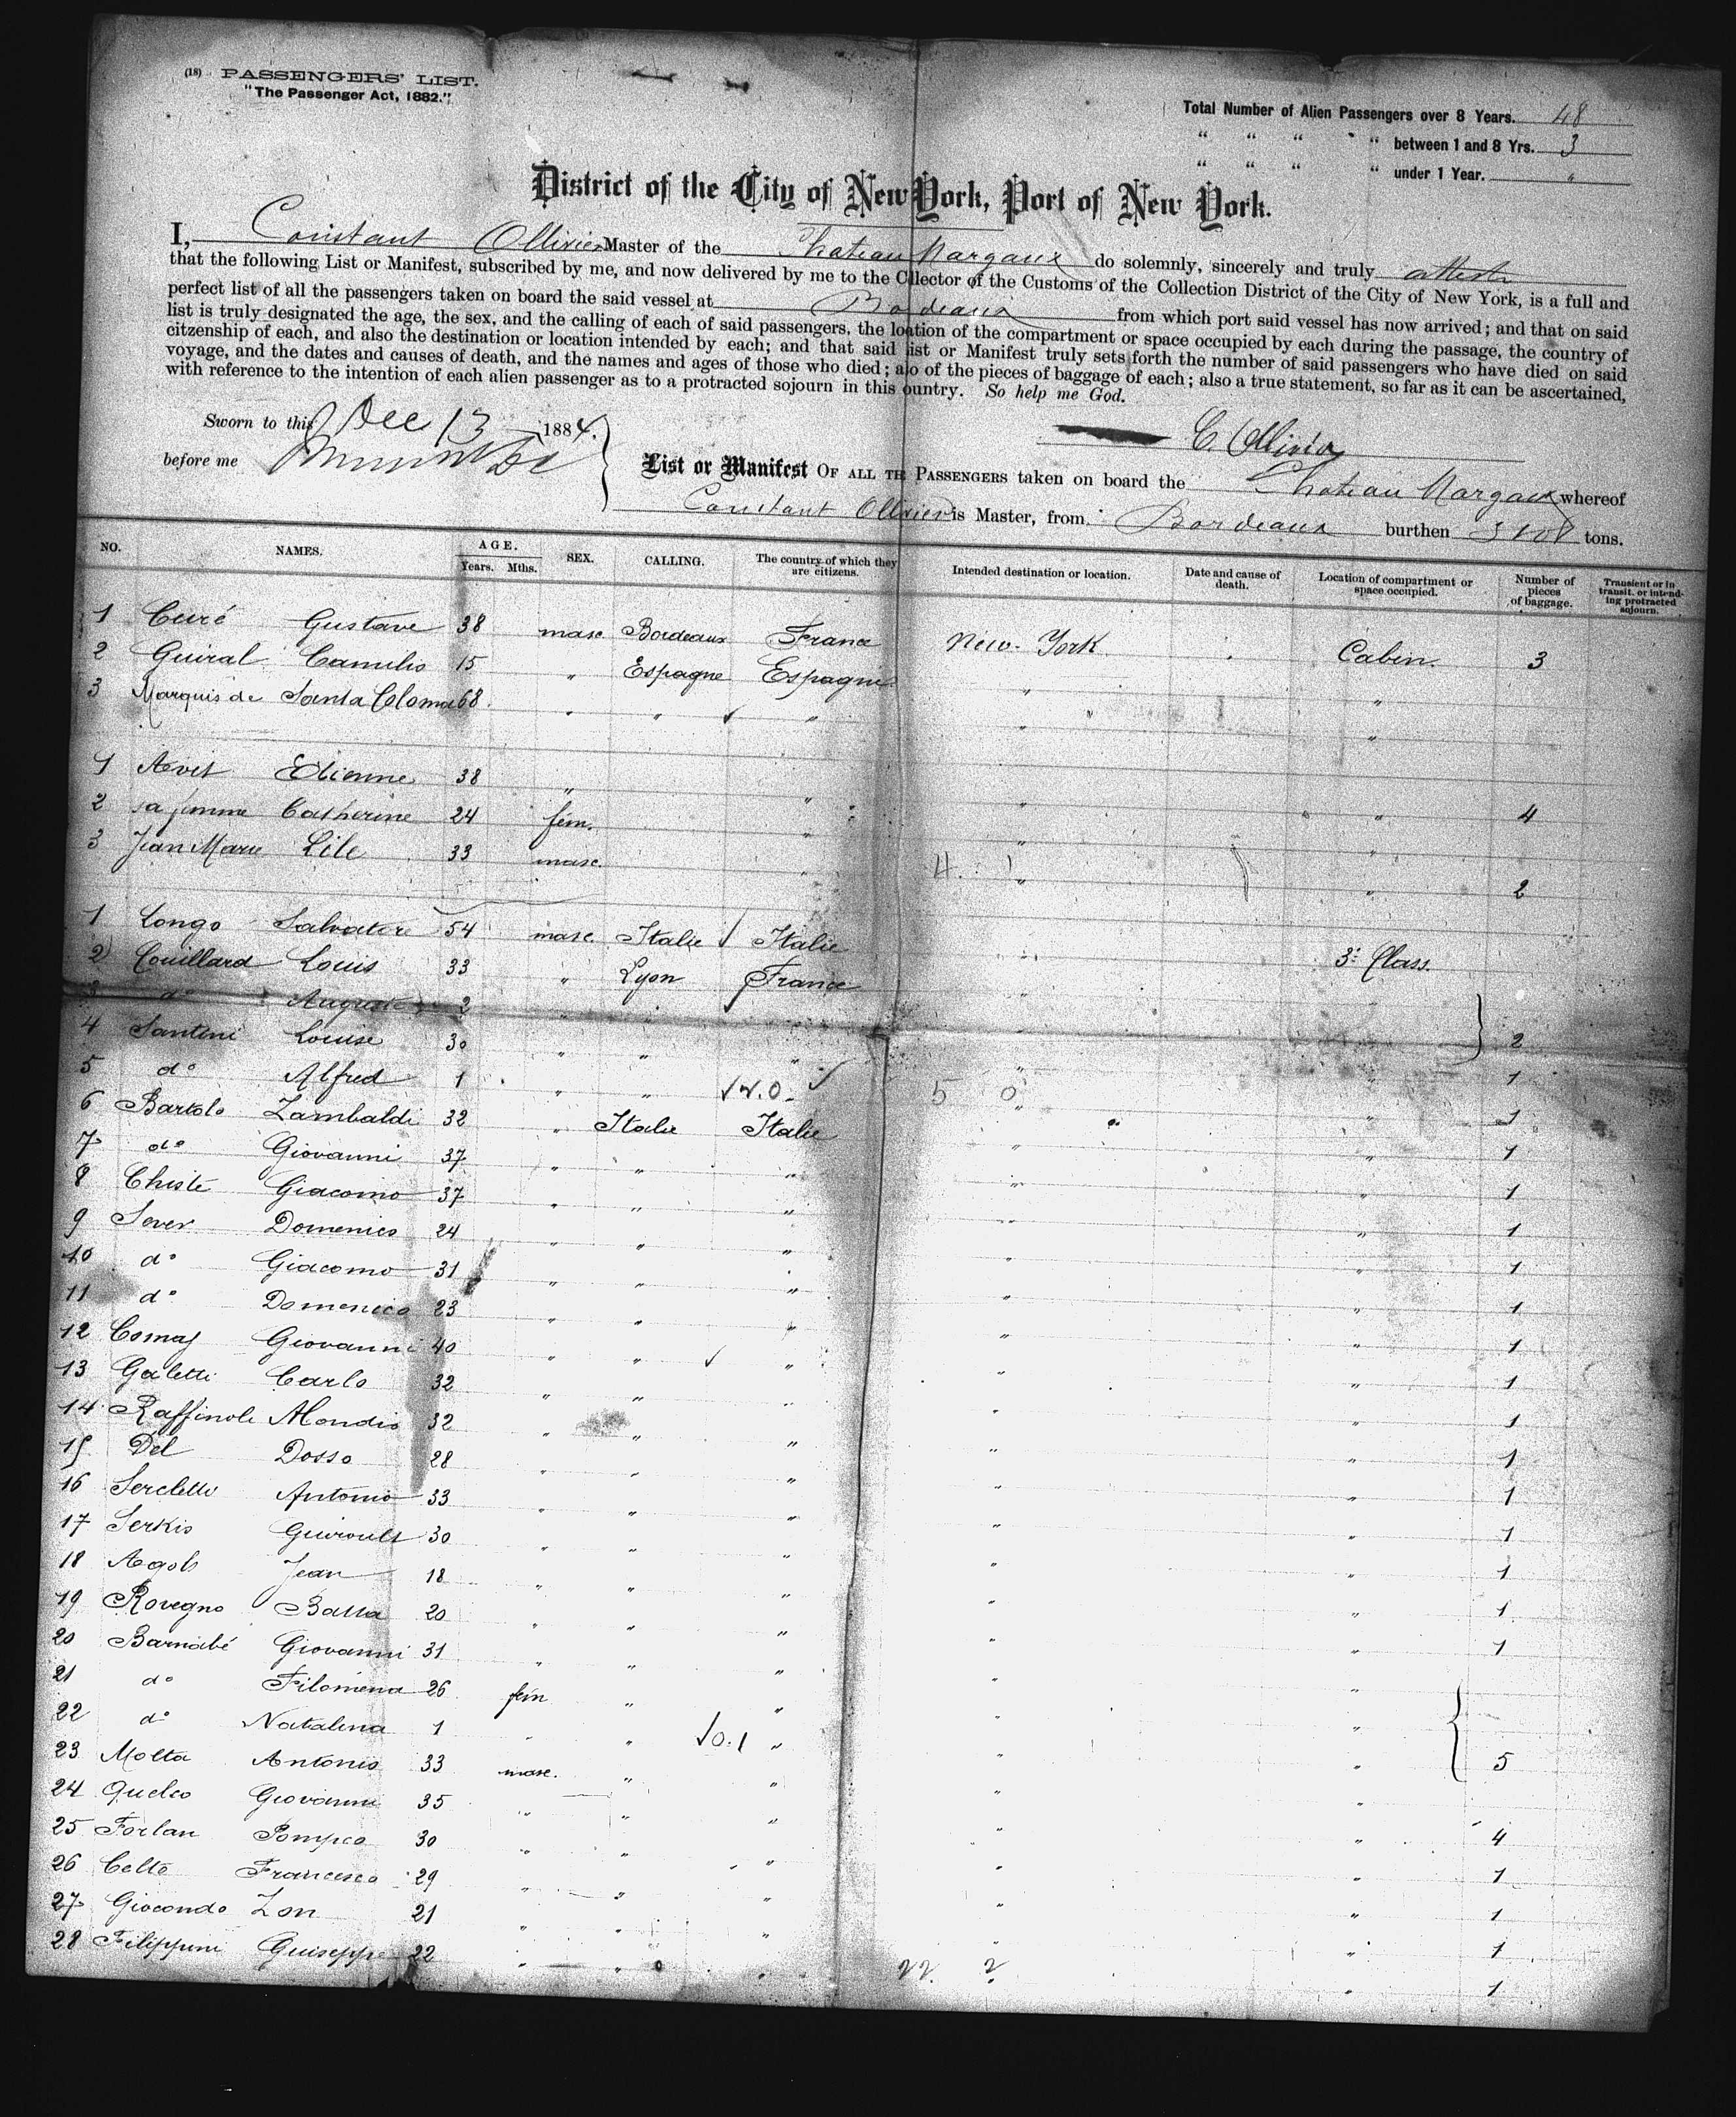 (18) PASSENGERS' LIST.
"The Passenger Act, 1882."
Total Number of Alien Passengers over 8 Years. 48
" " " " between 1 and 8 Yrs. 3
" " " " under 1 Year. "
District of the City of New York, Port of New York.
I, Constant Ollivier Master of the Chateau Margaux do solemnly, sincerely and truly attest
that the following List or Manifest, subscribed by me, and now delivered by me to the Collector of the Customs of the Collection District of the City of New York, is a full and
perfect list of all the passengers taken on board the said vessel at Bordeaux from which port said vessel has now arrived; and that on said
list is truly designated the age, the sex, and the calling of each of said passengers, the location of the compartment or space occupied by each during the passage, the country of
citzenship of each, and also the destination or location intended by each; and that said list or Manifest truly sets forth the number of said passengers who have died on said
voyage, and the dates and causes of death, and the names and ages of those who died; also of the pieces of baggage of each; also a true statement, so far as it can be ascertained,
with reference to the intention of each alien passenger as to a protracted sojourn in this country. So help me God.
Sworn to this Dec 13 1884.
C. Ollivier
before me
List or Manifest OF ALL THE PASSENGERS taken on board the Chateau Margaux whereof
Constant Ollivier is Master, from Bordeaux burthen tons.
NO. NAMES. AGE. Years. Mths. SEX. CALLING. The country of which they are citizens. Intended destination or location. Date and cause of death. Location of compartment or space occupied. Number of pieces of baggage. Transient or in transit, or intending protracted sojourn.
1 Curé Gustave 38 masc Bordeaux France New-York Cabin. 3
2 Guiral Camilio 15 " Espagne Espagne " "
3 Marquis de Santa Coloma 68 " " " " "
1 Avit Etienne 38 " " " " 4
2 sa femme Catherine 24 fém. " " "
3 Jean Marie Lile 33 masc. " " " 2
1 Longo Salvatore 54 masc. Italie Italie " 3e Class.
2 Couillard Louis 33 " Lyon France " "
3 do Auguste 2 " " " " " 2
4 Santini Louise 30 " " " " " 1
5 do Alfred 1 " " " " 1
6 Bartolo Zambaldi 32 " Italie Italie " " 1
7 do Giovanni 37 " " " " " 1
8 Chisté Giacomo 37 " " " " " 1
9 Sever Domenico 24 " " " " " 1
10 do Giacomo 31 " " " " " 1
11 do Domenico 23 " " " " " 1
12 Giovanni 40 " " " " " 1
13 Galetti Carlo 32 " " " " " 1
14 Raffinole 32 " " " " " 1
15 Del Dosso 28 " " " " " 1
16 Antonio 33 " " " " " 1
17 Serkis 30 " " " " " 1
18 Jean 18 " " " " " 1
19 Rovegno 20 " " " " " 1
20 Barnabé Giovanni 31 " " " " "
21 do Filomena 26 fém " " " "
22 do Natalina 1 " " " " " 5
23 Motta Antonio 33 masc. " " " "
24 Giovanni 35 " " " " " 4
25 Forlan Pompeo 30 " " " " " 1
26 Celte Francesco 29 " " " " " 1
27 Giocondo Zon 21 " " " " " 1
28 Filippini Guiseppe 22 " " " " 1